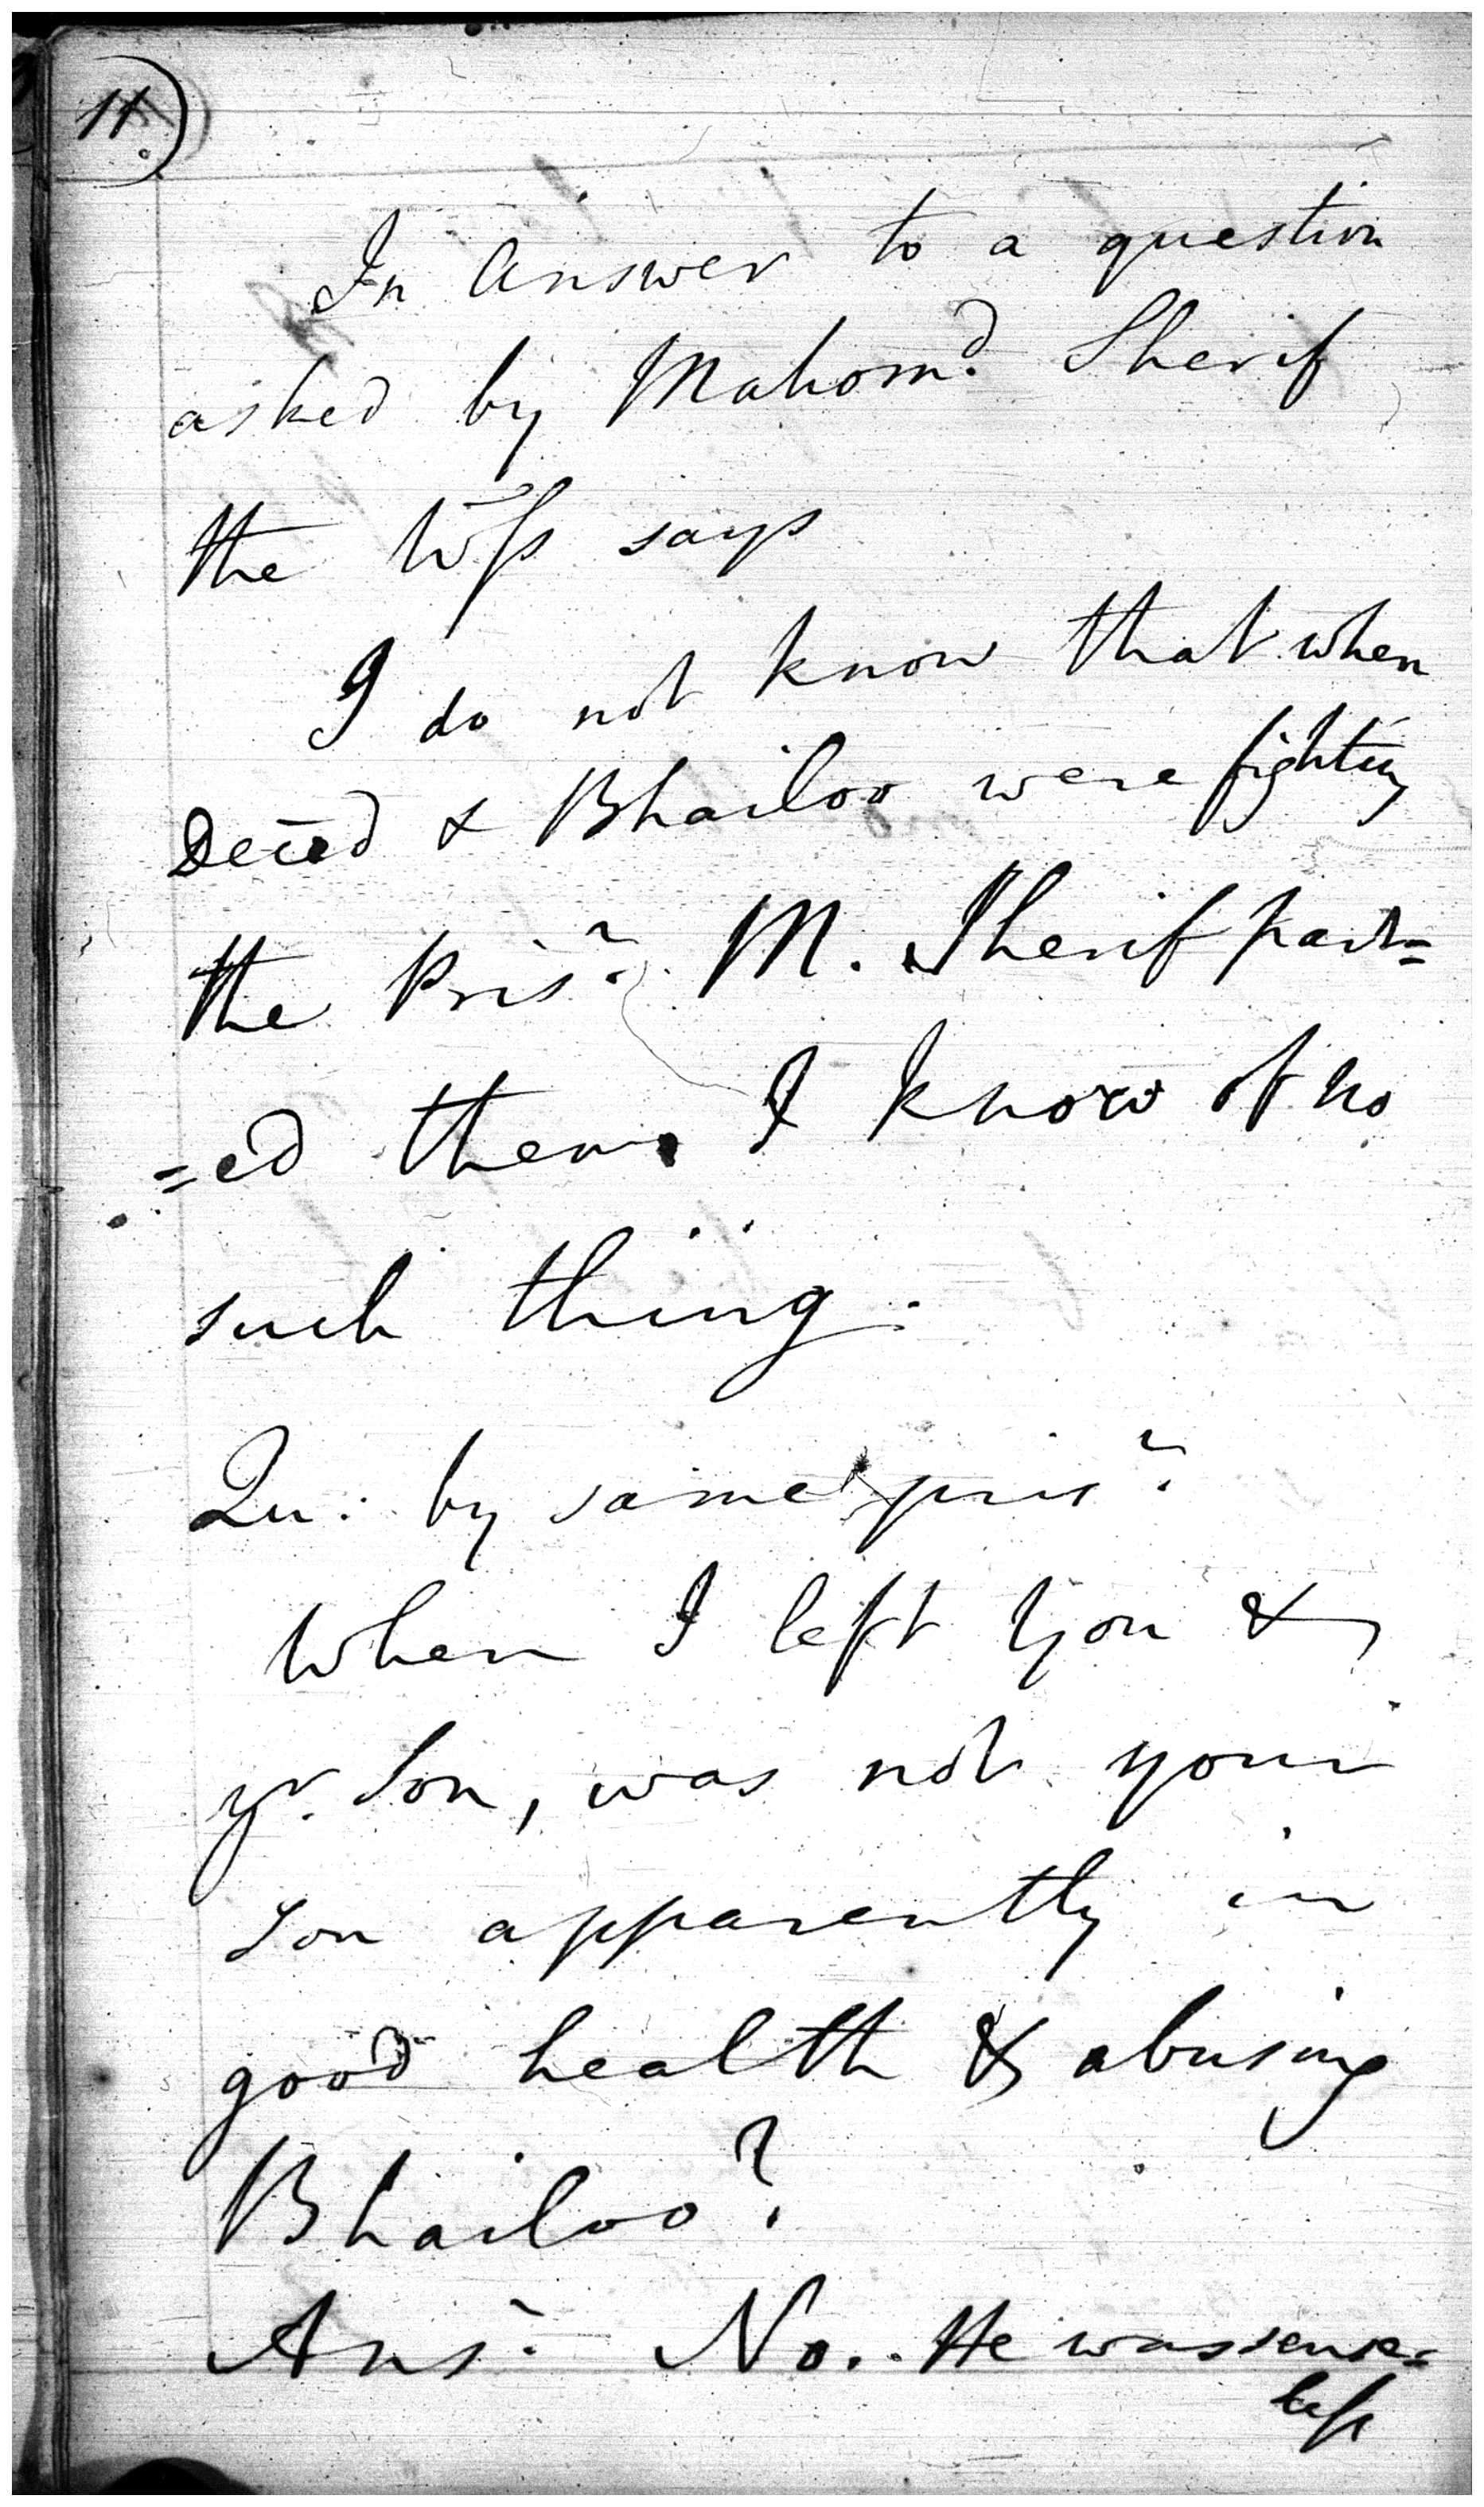 11)
In Answer to a question
asked by Mahomd. Sherif
the Wss says
I do not know that when
Deced & Bhailoo were fighting
the Prisr. M. Sherif part=
=ed them. I know of no
such thing.
Qu: by same prisr.
When I left you &
yr. Son, was not your
son apparently in
good health & abusing
Bhailoo?
Ansr. No. He was sense=
less